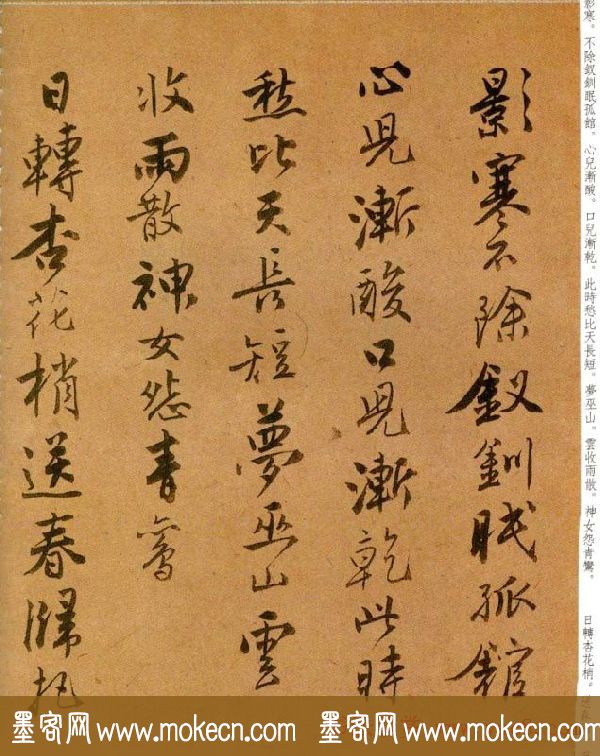 影寒。不除釵釧眠孤館。心兒漸酸。口兒漸乾。此時愁比天長短。夢巫山。雲收雨散。神女怨青鸞。
日轉杏花梢。
影寒不除釵釧眠孤館
心兒漸酸口兒漸乾此時
愁比天長短夢巫山雲
收雨散神女怨青鸞
日轉杏花梢送春歸
墨客网 www.mokecn.com 墨客网 www.mokecn.com